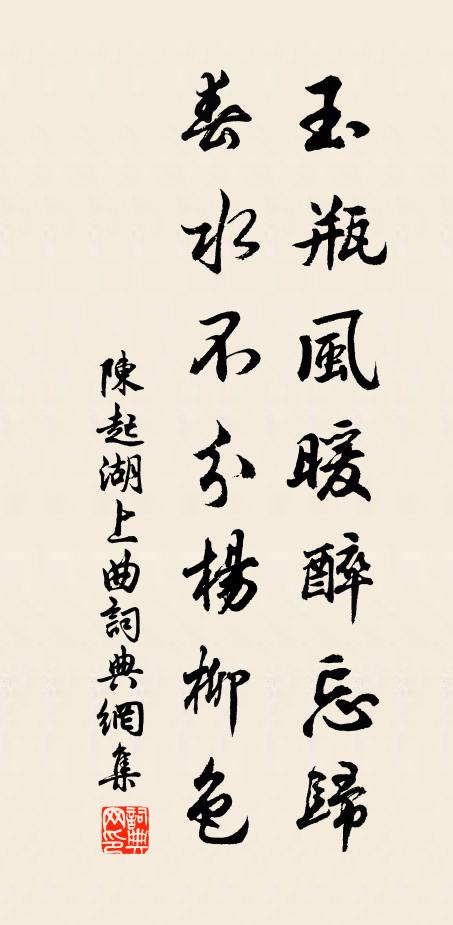 玉瓶風暖醉忘歸
春水不分楊柳色
陳起湖上曲詞典網集
詞典网印